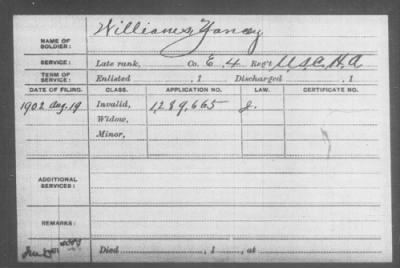 NAME OF SOLDIER: Williams, Yancy
SERVICE: Late rank, Co. E, 4 Reg't U.S.C.H.A
TERM OF SERVICE: Enlisted , 1 Discharged , 1
DATE OF FILING. CLASS. APPLICATION NO. LAW. CERTIFICATE NO.
1902 Aug. 19 Invalid, 1,289,665 J.
Widow,
Minor,
ADDITIONAL SERVICES:
REMARKS:
Died , 1 , at